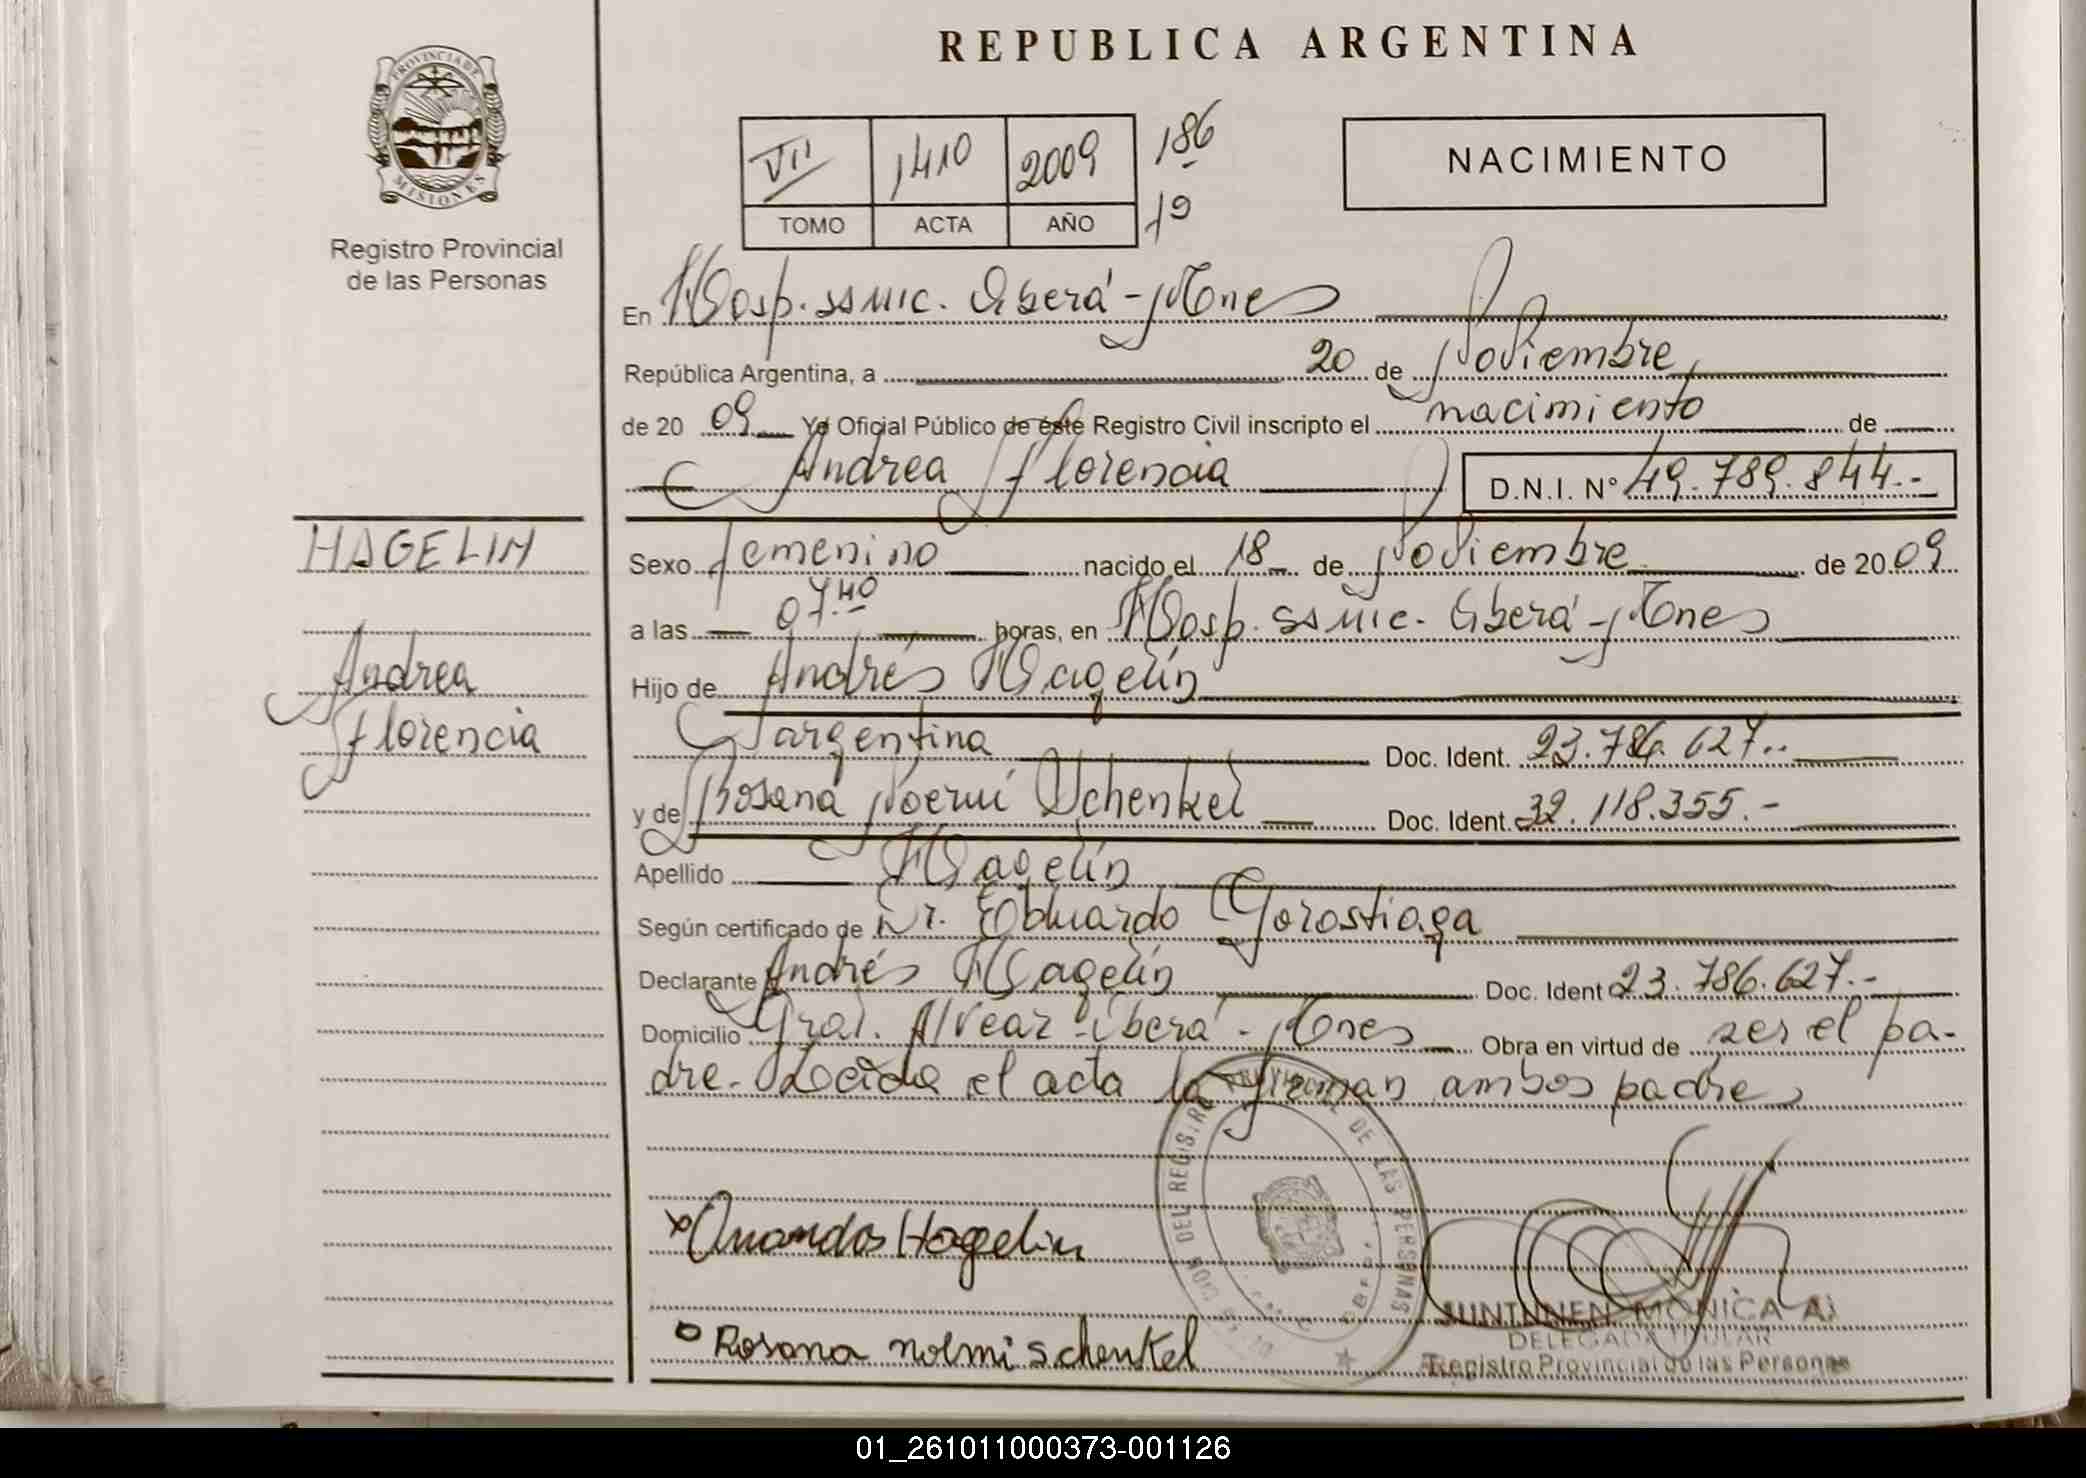 REPUBLICA ARGENTINA
PROVINCIA DE
MISIONES
Registro Provincial
de las Personas
VII 1410 2009 186
TOMO ACTA AÑO 19
NACIMIENTO
En Hosp. SSMIC. Oberá - Mnes
República Argentina, a 20 de Noviembre
de 20 09 Yo Oficial Público de éste Registro Civil inscripto el nacimiento de
Andrea Florencia D.N.I. Nº 49.789.844.-
HAGELIN
Andrea
Florencia
Sexo femenino nacido el 18 de Noviembre de 20 09
a las 07.40 horas, en Hosp. SSMIC. Oberá - Mnes
Hijo de Andrés Hagelin
argentina Doc. Ident. 23.786.627..
y de Rosana Noemí Schenkel Doc. Ident. 32.118.355.-
Apellido Hagelin
Según certificado de Dr. Eduardo Gorostiaga
Declarante Andrés Hagelin Doc. Ident 23.786.627.-
Domicilio Gral. Alvear - Oberá - Mnes Obra en virtud de ser el pa-
dre. Leída el acta la firman ambos padres
DEL REGISTRO PROVINCIAL DE LAS PERSONAS
Hagelin
Rosana noemi schenkel
MONICA A.
DELEGADA TITULAR
Registro Provincial de las Personas
01_261011000373-001126